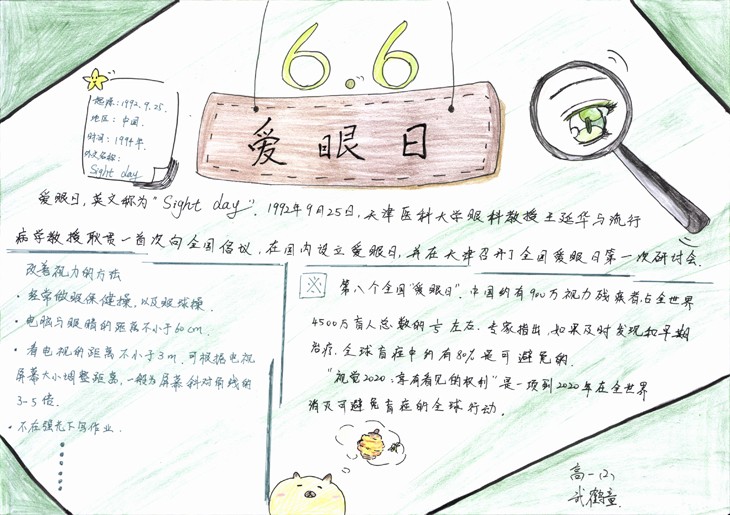 6.6
爱眼日
起源:1992.9.25.
地区:中国.
时间:1994年.
外文名称:
Sight day
爱眼日,英文称为"Sight day".1992年9月25日,天津医科大学眼科教授王延华与流行
病学教授耿贯一首次向全国倡议,在国内设立爱眼日,并在天津召开了全国爱眼日第一次研讨会.
改善视力的方法
·经常做眼保健操,以及眼球操.
·电脑与眼睛的距离不小于60cm.
·看电视的距离不小于3m.可根据电视
屏幕大小调整距离,一般为屏幕斜对角线的
3-5倍.
·不在强光下写作业.
※ 第八个全国"爱眼日".中国约有900万视力残疾者,占全世界
4500万盲人总数的1/5左右.专家指出,如果及时发现和早期
治疗.全球盲症中约有80%是可避免的.
"视觉2020:享有看见的权利"是一项到2020年在全世界
消灭可避免盲症的全球行动.
高一(2)
武鹤童